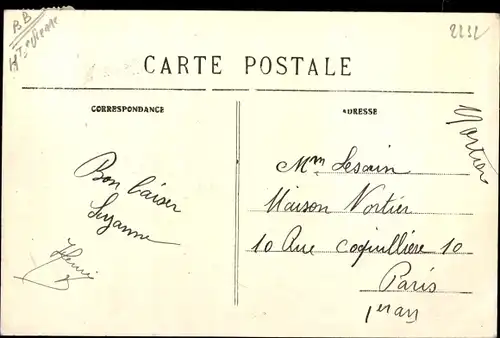 BB
2232
CARTE POSTALE
CORRESPONDANCE
ADRESSE
Bon baiser
Suzanne
Henri
Mm Lesain
Maison Vortier
10 Rue Coquillière 10
Paris
1er arr